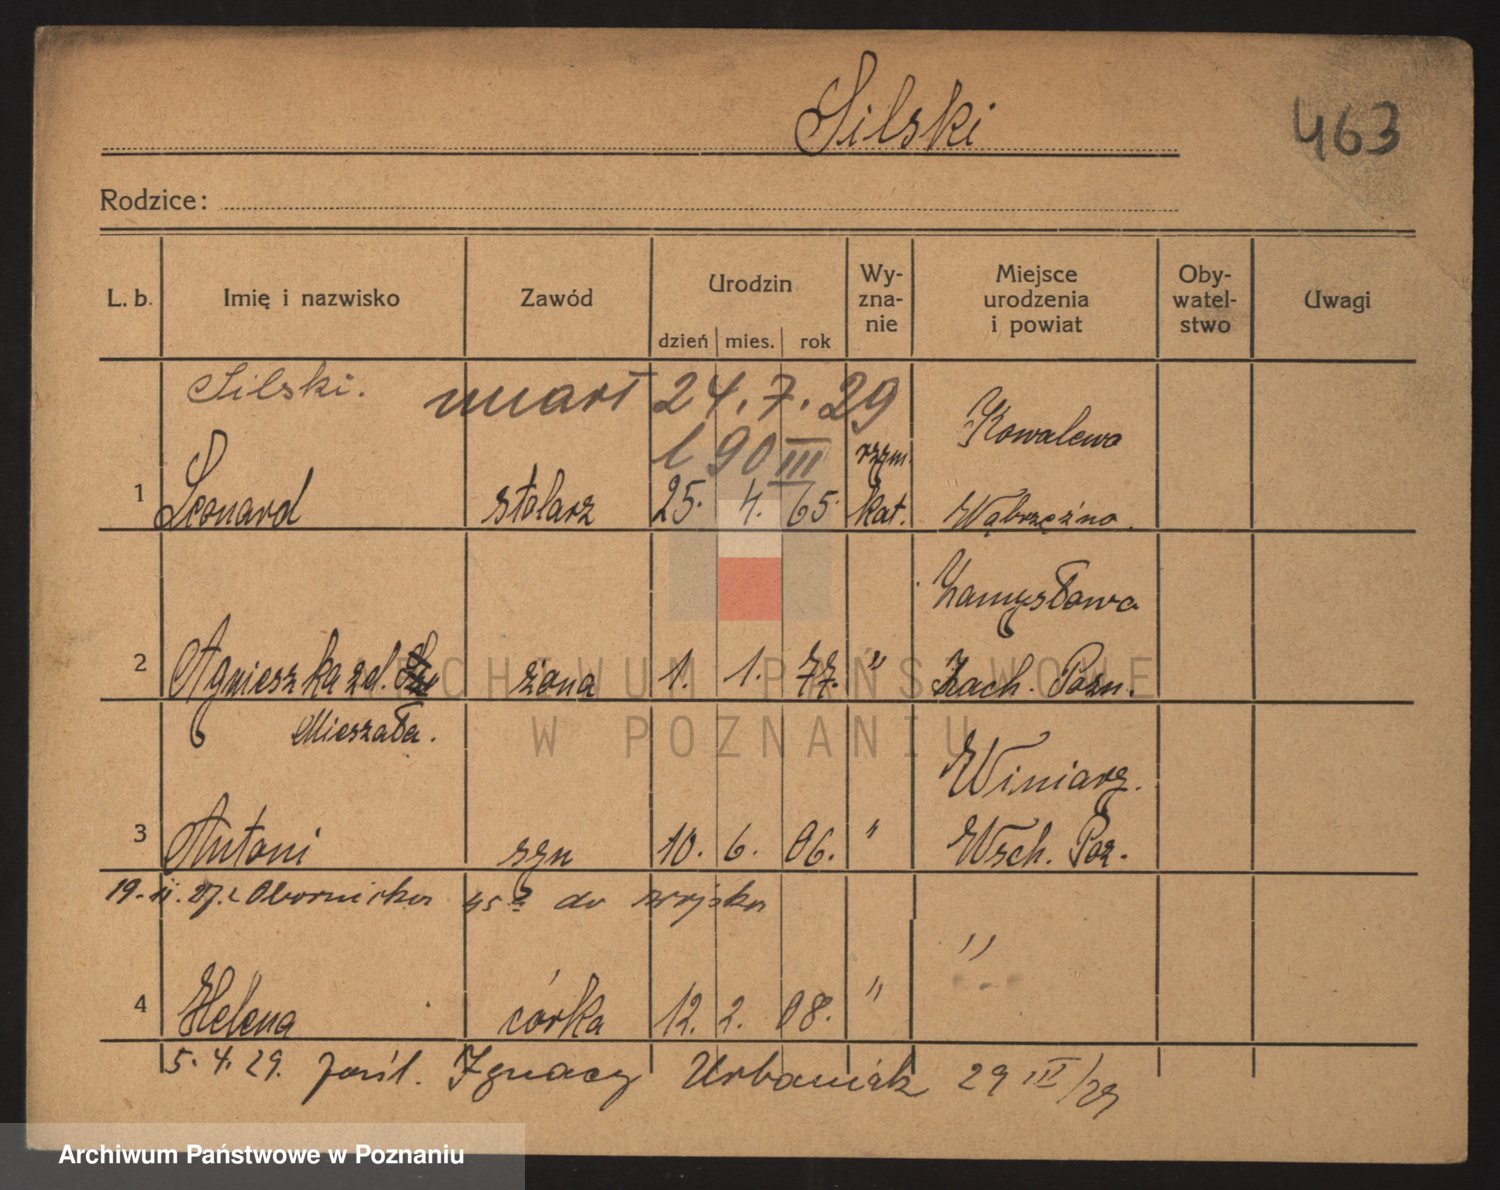 Silski
463
Rodzice:
L. b. Imię i nazwisko Zawód Urodzin Wy-zna-nie Miejsce urodzenia i powiat Oby-watel-stwo Uwagi
dzień mies. rok
Silski. umarł 24. 7. 29
Kowalewo
190 III rzym.
1 Leonard stolarz 25. 4. 65. kat. Wąbrzeźno.
Zamysłowo
2 Agnieszka zd. żona 1. 1. 77. " Zach. Pozn.
Mieszała.
Winiary.
3 Antoni syn 10. 6. 06. " Wsch. Poz.
19. 11. 27. z Obornicka 45 a do wojska
"
4 Helena córka 12. 2. 08. "
5. 4. 29. pośl. Ignacy Urbaniak 29 IV/29
ARCHIWUM PAŃSTWOWE
W POZNANIU
Archiwum Państwowe w Poznaniu